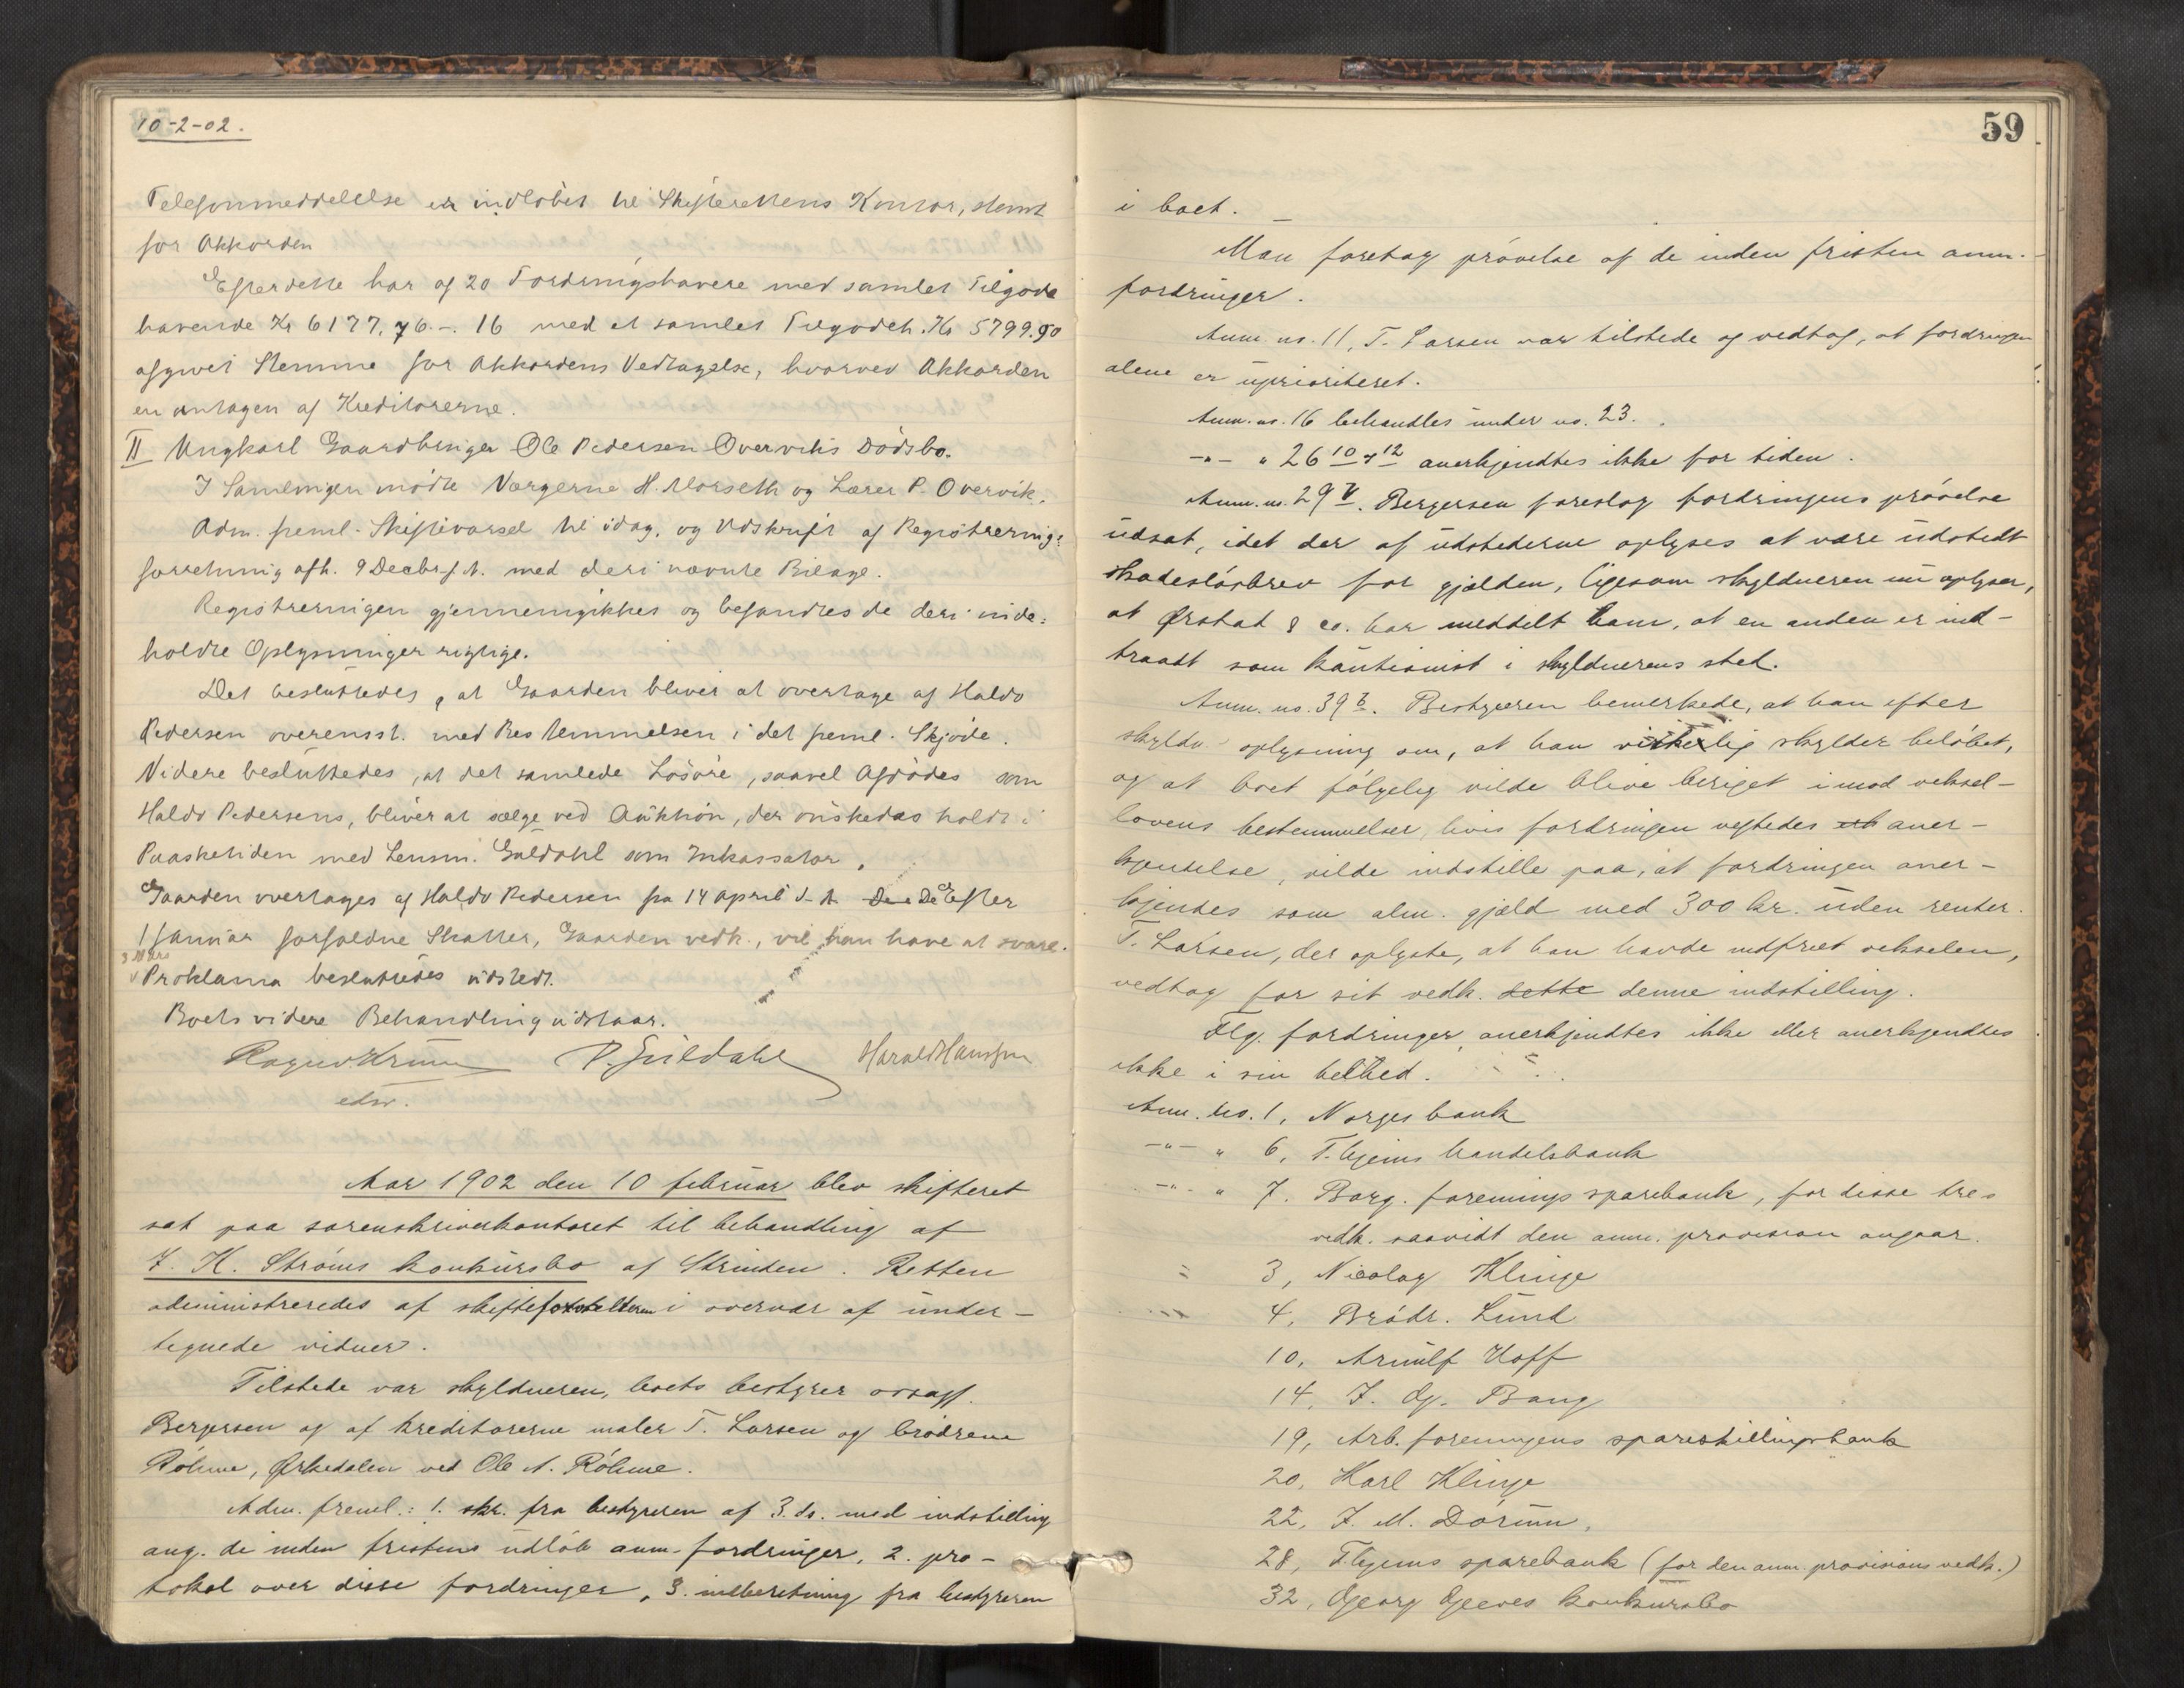 10-2-02.
Telefonmeddelelse er indløbet til Skifterettens Kontor, stemt
for Akkorden
Efter dette har af 20 Fordringshavere med samlet Tilgode
havende Kr 6177.76 -. 16 med et samlet Tilgodeh. Kr 5799.90
afgivet Stemme for Akkordens Vedtagelse, hvorved Akkorden
er antagen af Kreditorerne.
II Ungkarl Gaardbruger Ole Pedersen Overviks Dødsbo.
I Samlingen mødte Værgerne H. Morseth og Lærer P. Overvik.
Adm. freml. Skiftevarsel til idag, og Udskrift af Registrerings
forretning afh. 9 Decbr f. A. med deri nævnte Bilage.
Registreringen gjennemgikkes og befandtes de deri inde=
holdte Oplysninger rigtige.
Det besluttedes, at Gaarden bliver at overtage af Haldo
Pedersen overensst. med Bestemmelsen i det freml. Skjøde.
Videre besluttedes, at det samlede Løsøre, saavel Afdødes som
Haldo Pedersens, bliver at sælge ved Auktion, der ønskedes holdt i
Paasketiden med Lensm. Guldahl som Inkassator.
Gaarden overtages af Haldo Pedersen fra 14 April d. A. De De Efter
1 Januar forfaldne Skatter, Gaarden vedk., vil han have at svare.
3 Mars
v Proklama besluttedes udstedt.
Boets videre Behandling udstaar.
P. Guldahl Harald Hanssen
edsv.
Aar 1902 den 10 februar blev skifteret
sat paa sorenskriverkontoret til behandling af
J. K. Strøms konkursbo af Strinden. Retten
administreredes af skifteforvalteren i overvær af under-
tegnede vidner.
Tilstede var skyldneren, boets bestyrer orsagf.
Bergersen og af kreditorerne maler T. Larsen og brødrene
Røhme, Ørkedalen ved Ole A. Røhme.
Adm. freml.: 1. skr. fra bestyreren af 3. ds. med indstilling
ang. de inden fristens udløb anm. fordringer, 2. pro-
tokol over disse fordringer, 3. indberetning fra bestyreren
59
i boet.
Man foretog prøvelse af de inden fristen anm.
fordringer.
Anm. no. 11, T. Larsen var tilstede og vedtog, at fordringen
alene er uprioriteret.
Anm. no. 16 behandles under no. 23.
-"- " 26 10 + 12 anerkjendtes ikke for tiden.
Anm. no. 29 V. Bergersen foreslog fordringens prøvelse
udsat, idet der af udstederne oplyses at være udstedt
skadesløsbrev for gjælden, ligesom skyldneren nu oplyser,
at Ørstad & co. har meddelt ham, at en anden er ind-
traadt som kautionist i skyldnerens sted.
Anm. no. 39 b. Bestyreren bemerkede, at han efter
skyldn. oplysning om, at han virkelig skylder beløbet,
og at boet følgelig vilde blive beriget imod veksel-
lovens bestemmelser, hvis fordringen negtedes aner-
kjendelse, vilde indstille paa, at fordringen aner-
kjendes som alm. gjæld med 300 kr. uden renter.
T. Larsen, der oplyste, at han havde indfriet vekselen,
vedtog for sit vedk. dette denne indstilling.
Flg. fordringer anerkjendtes ikke eller anerkjendtes
ikke i sin helhed.
Anm. no. 1, Norges bank
-"- " 6, T.hjems handelsbank
-"- " 7. Borg. forenings sparebank, for disse tres
vedk. saavidt den anm. provision angaar.
= 3, Nicolay Klinge
4, Brødr. Lund
10, Arnulf Hoff
14, J. G. Bang
19, Arb. foreningens spareskillingsbank
20, Karl Klinge
22, J. M. Dørum,
28, T.hjems sparebank (for den anm. provisions vedk.)
32, Georg Gjeves konkursbo